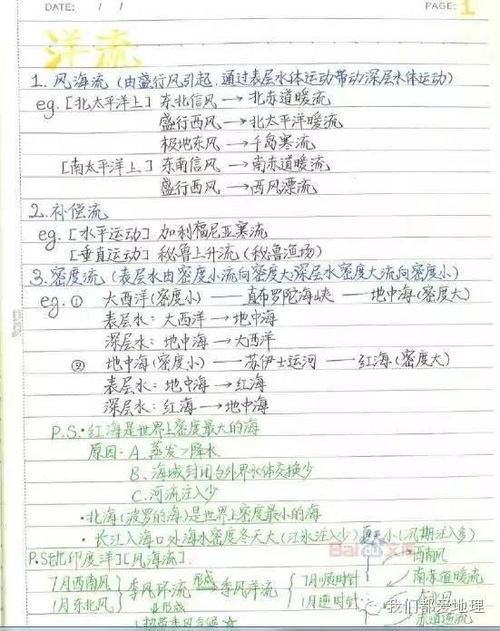 DATE: / /
PAGE: 1
洋流
1. 风海流 (由盛行风引起, 通过表层水体运动带动深层水体运动)
eg. [北太平洋上] 东北信风→北赤道暖流
盛行西风→北太平洋暖流
极地东风→千岛寒流
[南太平洋上] 东南信风→南赤道暖流
盛行西风→西风漂流
2. 补偿流
eg. [水平运动] 加利福尼亚寒流
[垂直运动] 秘鲁上升流 (秘鲁渔场)
3. 密度流 (表层水由密度小流向密度大,深层水密度大流向密度小)
eg. ① 大西洋(密度小) —— 直布罗陀海峡 —— 地中海(密度大)
表层水: 大西洋→地中海
深层水: 地中海→大西洋
② 地中海(密度小) —— 苏伊士运河 —— 红海(密度大)
表层水: 地中海→红海
深层水: 红海→地中海
P.S.·红海是世界上密度最大的海
原因: A. 蒸发>降水
B. 海域封闭与外界水体交换少
C. 河流注入少
·北海(波罗的海)是世界上密度最小的海
·长江入海口外海水密度冬天大(江水注入少)夏天小(汛期注入多)
P.S.北印度洋][风海流]
7月西南风 季风环流 形成→季风洋流 7月顺时针 西南风
1月东北风 1月逆时针 南赤道暖流
东北风
赤道逆流
Bai 文库
我们都爱地理